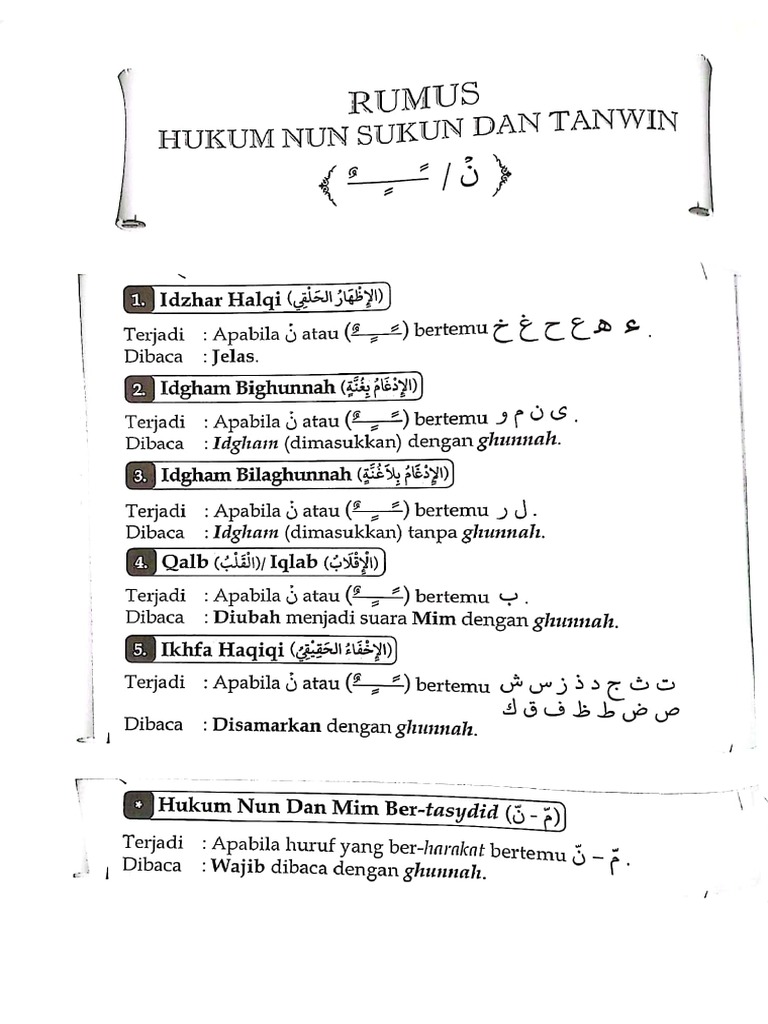 RUMUS
HUKUM NUN SUKUN DAN TANWIN
﴿ نْ / ـًـٍـٌ ﴾
1. Idzhar Halqi (الإِظْهَارُ الحَلْقِي)
Terjadi : Apabila نْ atau (ـًـٍـٌ) bertemu ء ه ع ح غ خ .
Dibaca : Jelas.
2. Idgham Bighunnah (الإِدْغَامُ بِغُنَّةٍ)
Terjadi : Apabila نْ atau (ـًـٍـٌ) bertemu ى ن م و .
Dibaca : Idgham (dimasukkan) dengan ghunnah.
3. Idgham Bilaghunnah (الإِدْغَامُ بِلاَغُنَّةٍ)
Terjadi : Apabila نْ atau (ـًـٍـٌ) bertemu ل ر .
Dibaca : Idgham (dimasukkan) tanpa ghunnah.
4. Qalb (الْقَلْبُ)/ Iqlab (الْإِقْلَابُ)
Terjadi : Apabila نْ atau (ـًـٍـٌ) bertemu ب .
Dibaca : Diubah menjadi suara Mim dengan ghunnah.
5. Ikhfa Haqiqi (الإِخْفَاءُ الحَقِيْقِيْ)
Terjadi : Apabila نْ atau (ـًـٍـٌ) bertemu ت ث ج د ذ ز س ش
ص ض ط ظ ف ق ك
Dibaca : Disamarkan dengan ghunnah.
* Hukum Nun Dan Mim Ber-tasydid (مّ - نّ)
Terjadi : Apabila huruf yang ber-harakat bertemu مّ – نّ .
Dibaca : Wajib dibaca dengan ghunnah.